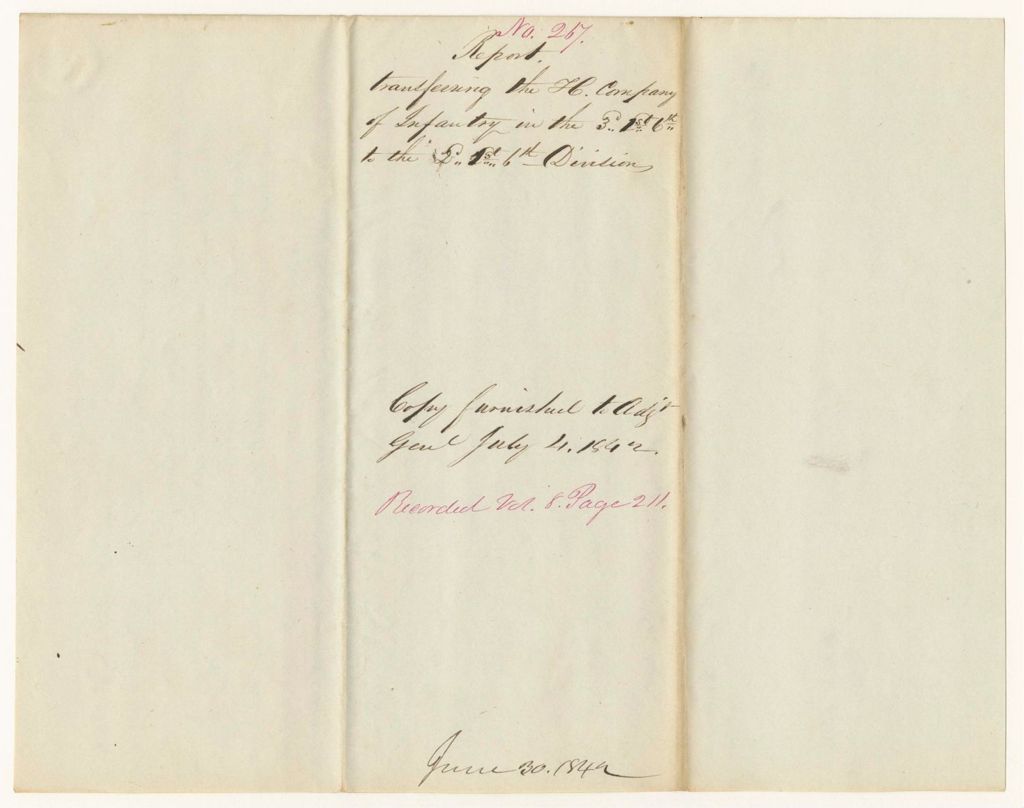 No. 267.
Report.
transfering the H. Company
of Infantry in the 3d. 1st. 6th.
to the 2d. 1st. 6th Division
Copy furnished to Adjt
Genl July 4. 1842.
Recorded Vol. 8. Page 211.
June 30. 1842